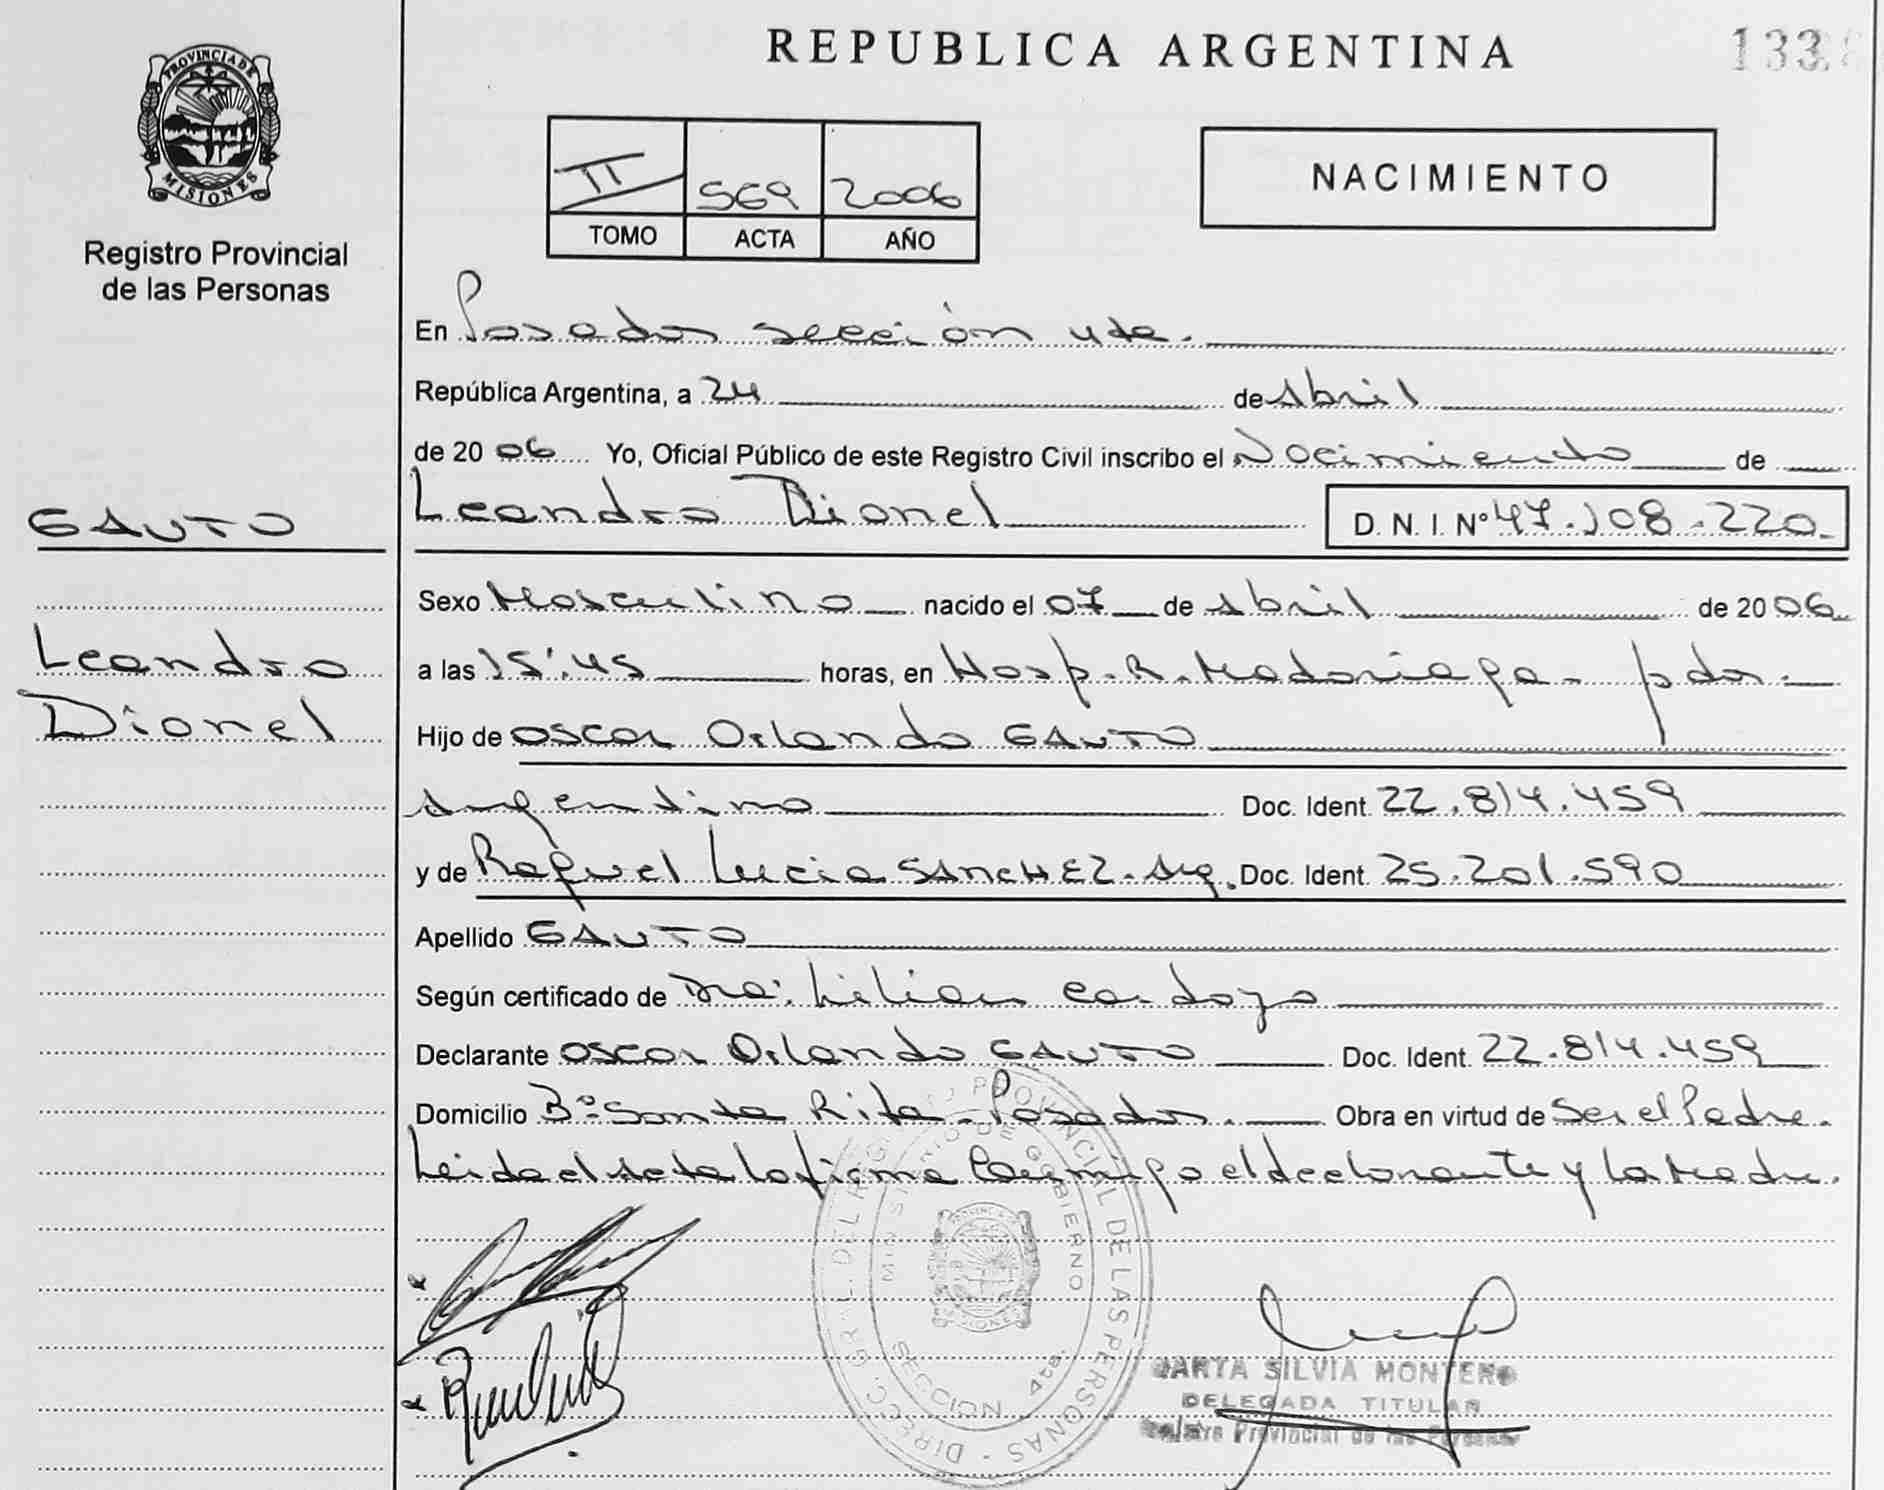 REPUBLICA ARGENTINA
133
PROVINCIA DE
MISIONES
Registro Provincial
de las Personas
II 569 2006
TOMO ACTA AÑO
NACIMIENTO
En Posadas sección 4ta.
República Argentina, a 24 de Abril
de 2006 Yo, Oficial Público de este Registro Civil inscribo el Nacimiento de
GAUTO
Leandro Dionel D. N. I. Nº 47.108.220
Sexo Masculino nacido el 07 de Abril de 2006
Leandro
Dionel
a las 15:45 horas, en Hosp. R. Madariaga - pdas.
Hijo de Oscar Orlando GAUTO
Argentino Doc. Ident. 22.814.459
y de Raquel Lucia SANCHEZ. Arg. Doc. Ident. 25.201.590
Apellido GAUTO
Según certificado de Dra. Lilian Cardozo
Declarante Oscar Orlando GAUTO Doc. Ident. 22.814.459
Domicilio Bº Santa Rita - Posadas. Obra en virtud de Ser el Padre.
Leida el Acta la firma Conmigo el declarante y la Madre.
DIRECC. GRAL. DEL REGISTRO PROVINCIAL DE LAS PERSONAS
MINISTERIO DE GOBIERNO
SECCION 4ta.
MARTA SILVIA MONTERO
DELEGADA TITULAR
Registro Provincial de las Personas